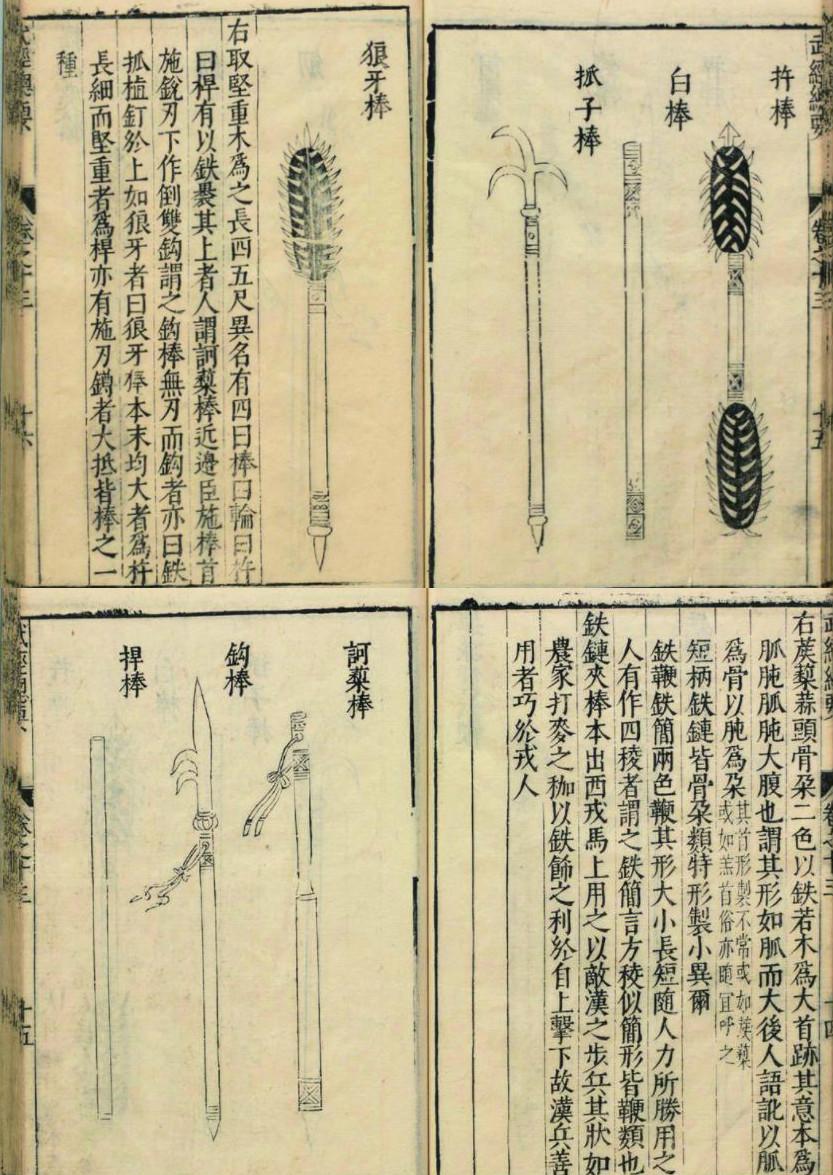 武經總要
卷之十三
十五
杵棒
白棒
抓子棒
狼牙棒
右取堅重木爲之長四五尺異名有四曰棒曰輪曰杵
曰桿有以鉄裹其上者人謂訶蔾棒近邊臣施棒首
施銳刃下作倒雙鈎謂之鈎棒無刃而鈎者亦曰鉄
抓植釘於上如狼牙者曰狼牙棒本末均大者爲杵
長細而堅重者爲桿亦有施刃鐏者大抵皆棒之一
種
卷之十三
十六
武經總要
卷之十三
十四
右蒺蔾蒜頭骨朵二色以鉄若木爲大首跡其意本爲
胍肫胍肫大腹也謂其形如胍而大後人語訛以胍
爲骨以肫爲朵
其首形製不常或如蒺藜
或如羔首俗亦隨宜呼之
短柄鉄鏈皆骨朵類特形製小異爾
鉄鞭鉄簡兩色鞭其形大小長短隨人力所勝用之
人有作四稜者謂之鉄簡言方稜似簡形皆鞭類也
鉄鏈夾棒本出西戎馬上用之以敵漢之步兵其狀如
農家打麥之枷以鉄飾之利於自上擊下故漢兵善
用者巧於戎人
訶蔾棒
鈎棒
捍棒
卷之十三
十五